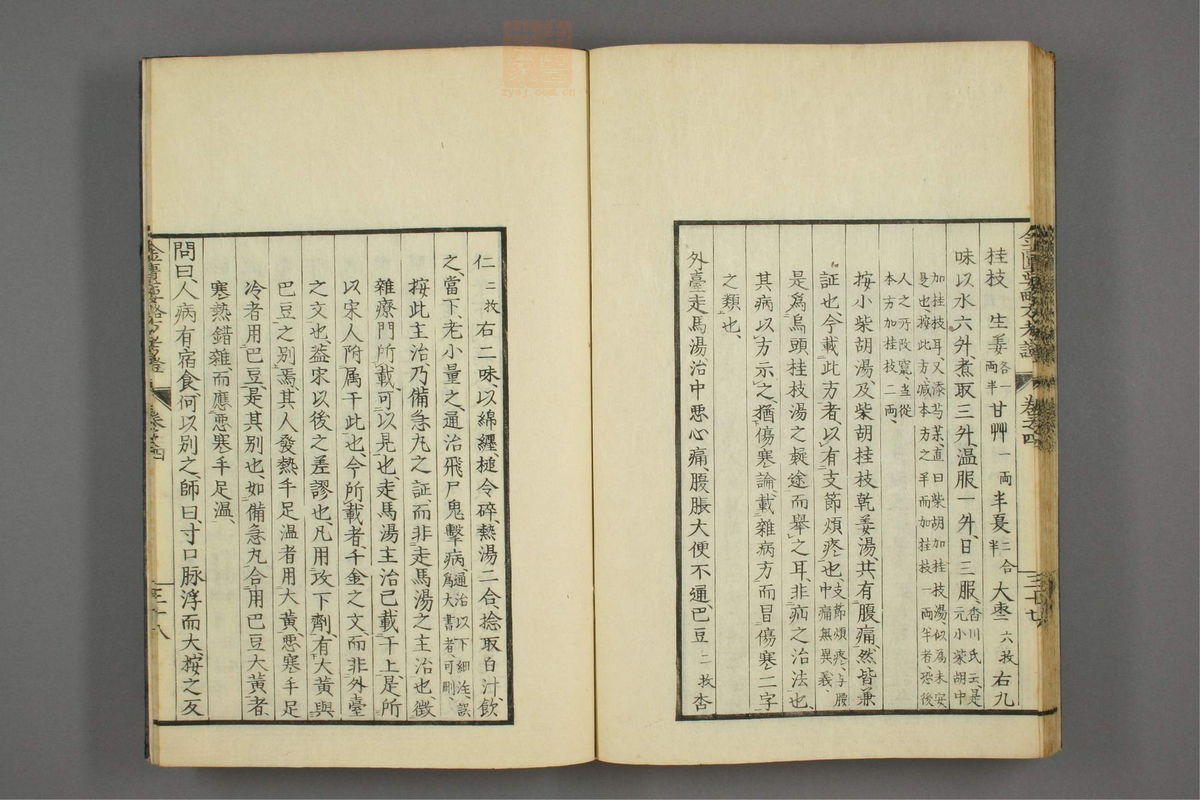 桂枝 生姜各一両半 甘艸一両 半夏二合半 大棗六枚 右九
味以水六升、煮取三升、温服一升、日三服、杳川氏云、是元小柴胡中
加桂枝耳、又添芍薬、直曰柴胡加桂枝湯、似為未安
是也、按此方、减本方之半而加桂枝一両半者、恐後
人之所改竄、当從
本方加桂枝二両、
按小柴胡湯及柴胡桂枝乾姜湯、共有腹痛、然皆兼
証也、今載此方者、以有支節煩疼也、支節煩疼、与腰中痛無異義
是爲烏頭桂枝湯之疑途而舉之耳、非疝之治法也、
其病以方示之、猶傷寒論、載雜病方而冒傷寒二字
之類也、
外臺走馬湯、治中悪心痛、腹脹大便不通、巴豆二枚 杏
仁二枚 右二味、以綿纏、槌令碎、熱湯二合、捻取白汁、飲
之、當下、老小量之、通治飛尸鬼擊病、通治以下細註、誤爲大書者、可刪、
按此主治、乃備急丸之証、而非走馬湯之主治也、徴
雜療門所載、可以見也、走馬湯主治已載于上、是所
以宋人附属于此也、今所載者、千金之文、而非外臺
之文也、葢宋以後之差謬也、凡用攻下劑、有大黄與
巴豆之別焉、其人發熱手足温者用大黄、悪寒手足
冷者用巴豆、是其別也、如備急丸合用巴豆大黄者、
寒熱錯雜、而應悪寒手足温、
問曰、人病有宿食、何以別之、師曰、寸口脉浮而大、按之反